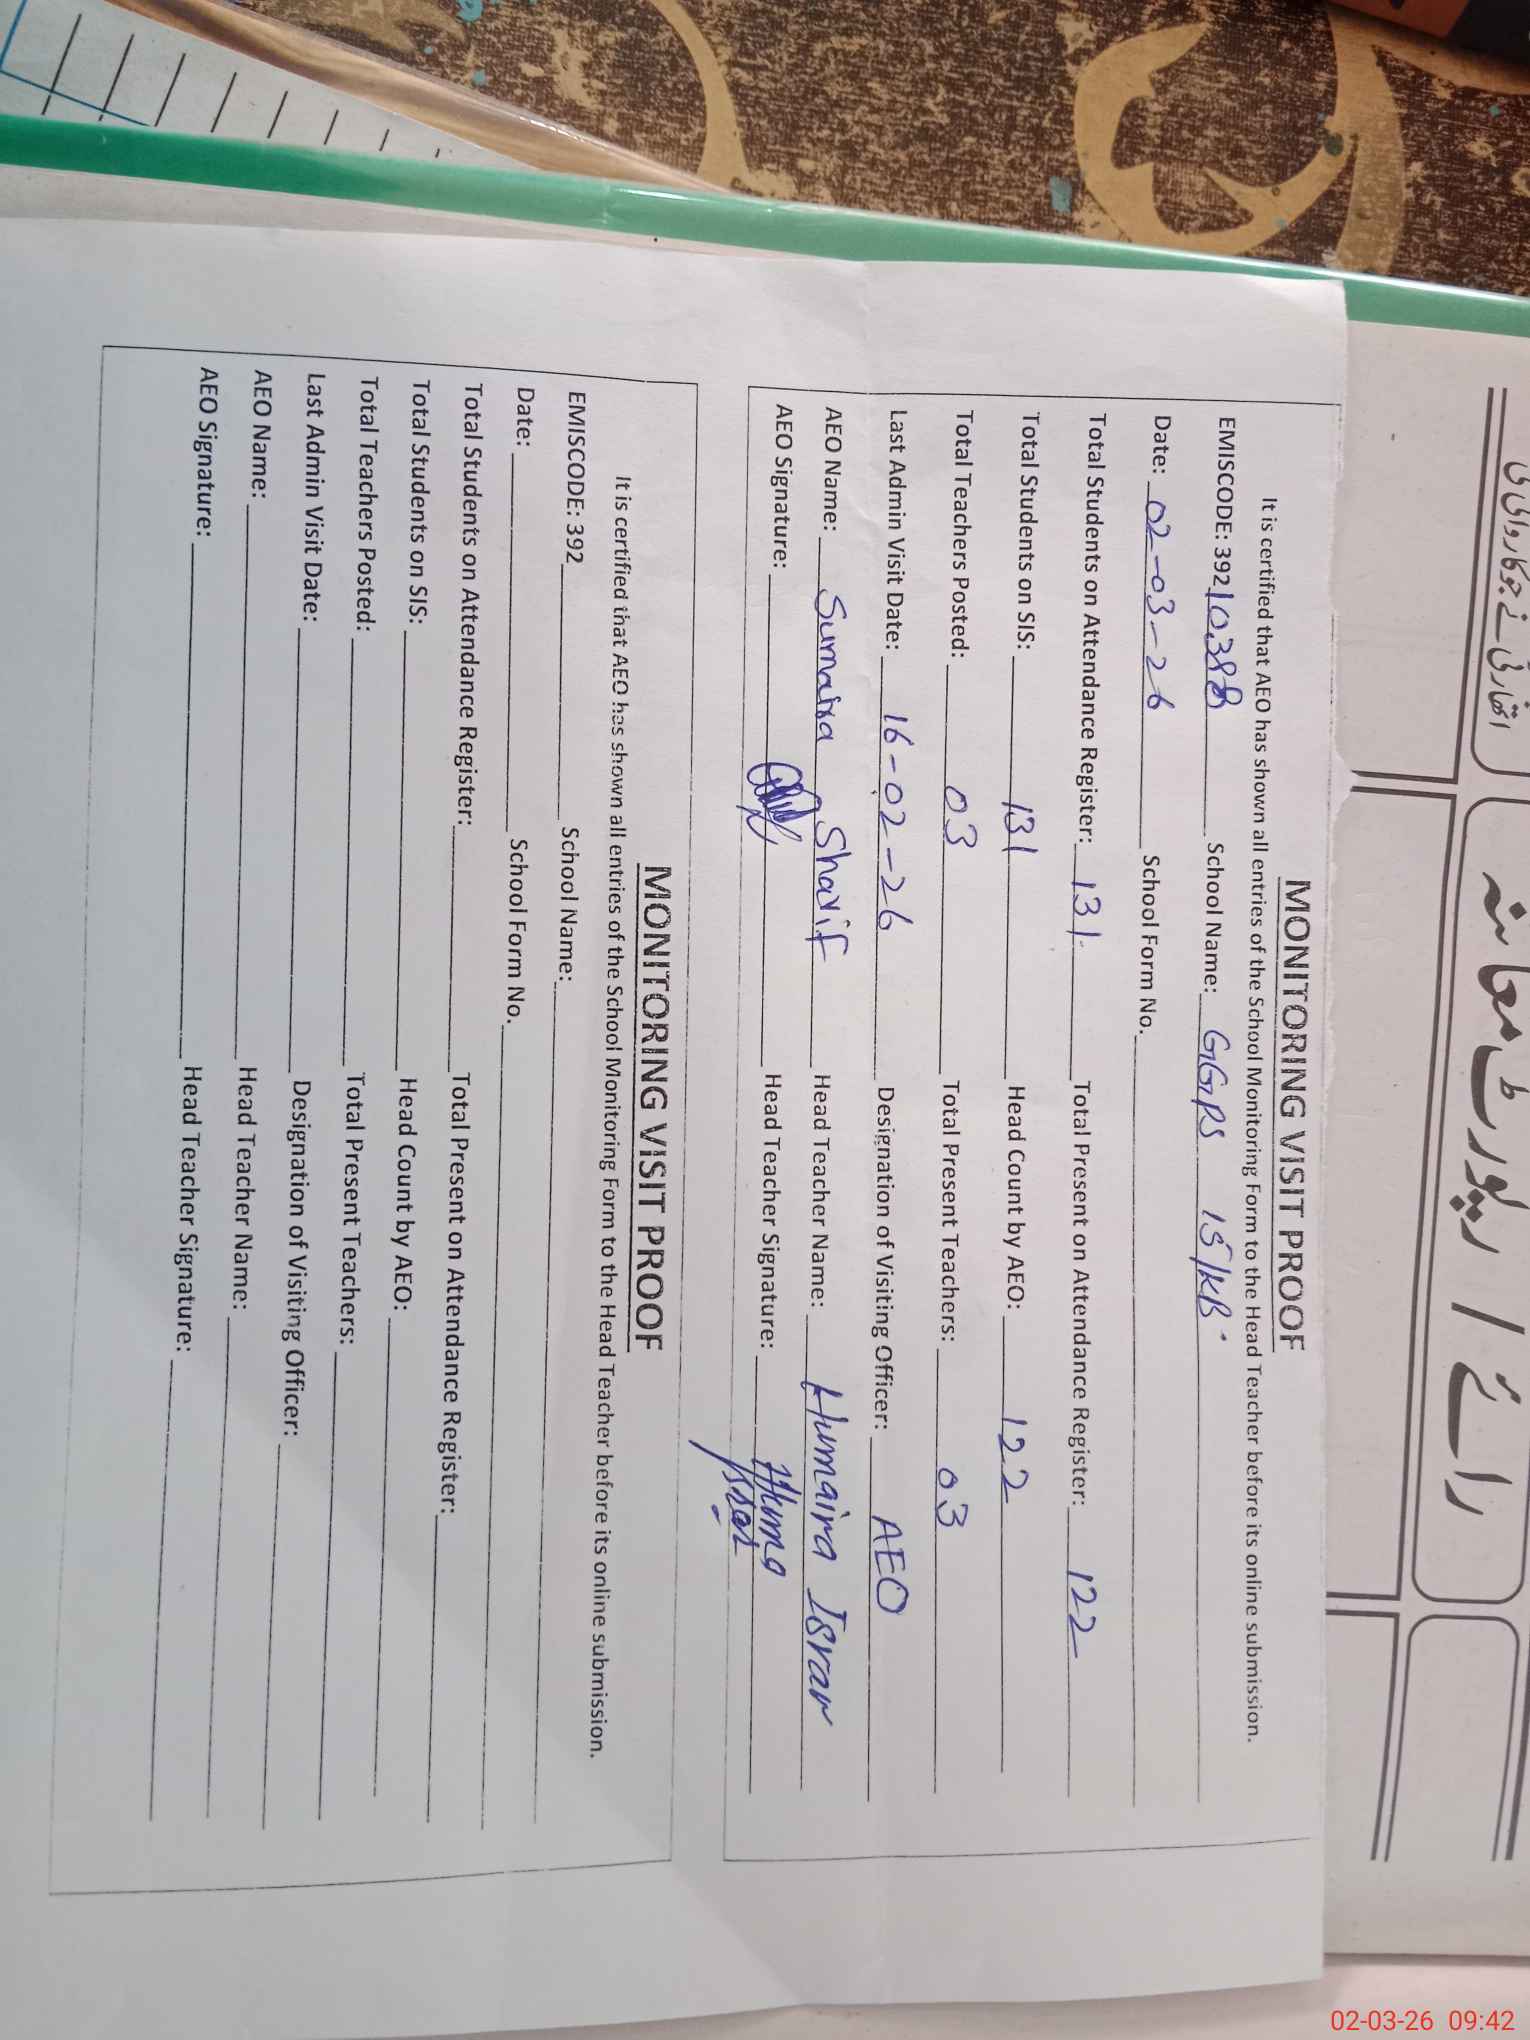 اتھارٹی نے جو کاروائی کی
رائے / رپورٹ معائنہ
MONITORING VISIT PROOF
It is certified that AEO has shown all entries of the School Monitoring Form to the Head Teacher before its online submission.
EMISCODE: 39210388 School Name: GGPS 15/KB.
Date: 02-03-26 School Form No.
Total Students on Attendance Register: 131 Total Present on Attendance Register: 122
Total Students on SIS: 131 Head Count by AEO: 122
Total Teachers Posted: 03 Total Present Teachers: 03
Last Admin Visit Date: 16-02-26 Designation of Visiting Officer: AEO
AEO Name: Sumaira Sharif Head Teacher Name: Humaira Israr
AEO Signature: Head Teacher Signature: Huma
MONITORING VISIT PROOF
It is certified that AEO has shown all entries of the School Monitoring Form to the Head Teacher before its online submission.
EMISCODE: 392 School Name:
Date: School Form No.
Total Students on Attendance Register: Total Present on Attendance Register:
Total Students on SIS: Head Count by AEO:
Total Teachers Posted: Total Present Teachers:
Last Admin Visit Date: Designation of Visiting Officer:
AEO Name: Head Teacher Name:
AEO Signature: Head Teacher Signature:
02-03-26 09:42